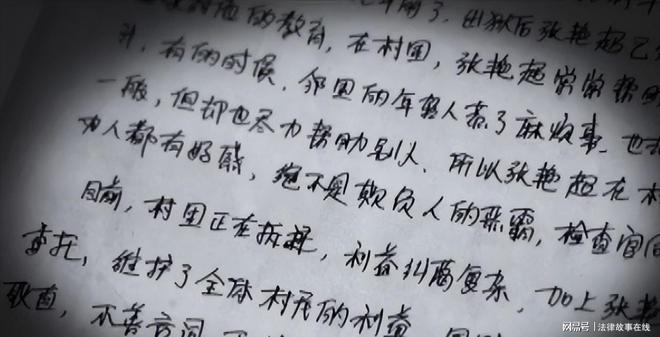 的教育,在村里,张艳超常常帮
出狱后张艳超已
升,有的时候,邻里的年轻人惹了麻烦事,也
一般,但却也尽力帮助别人,所以张艳超在
人都有好感,绝不是欺负人的恶霸,检查官
目前,村里正在拆迁,利益纠葛复杂,加上张
委托,维护了全体村民的利益
耿直,不善言词
网易号 | 法律故事在线